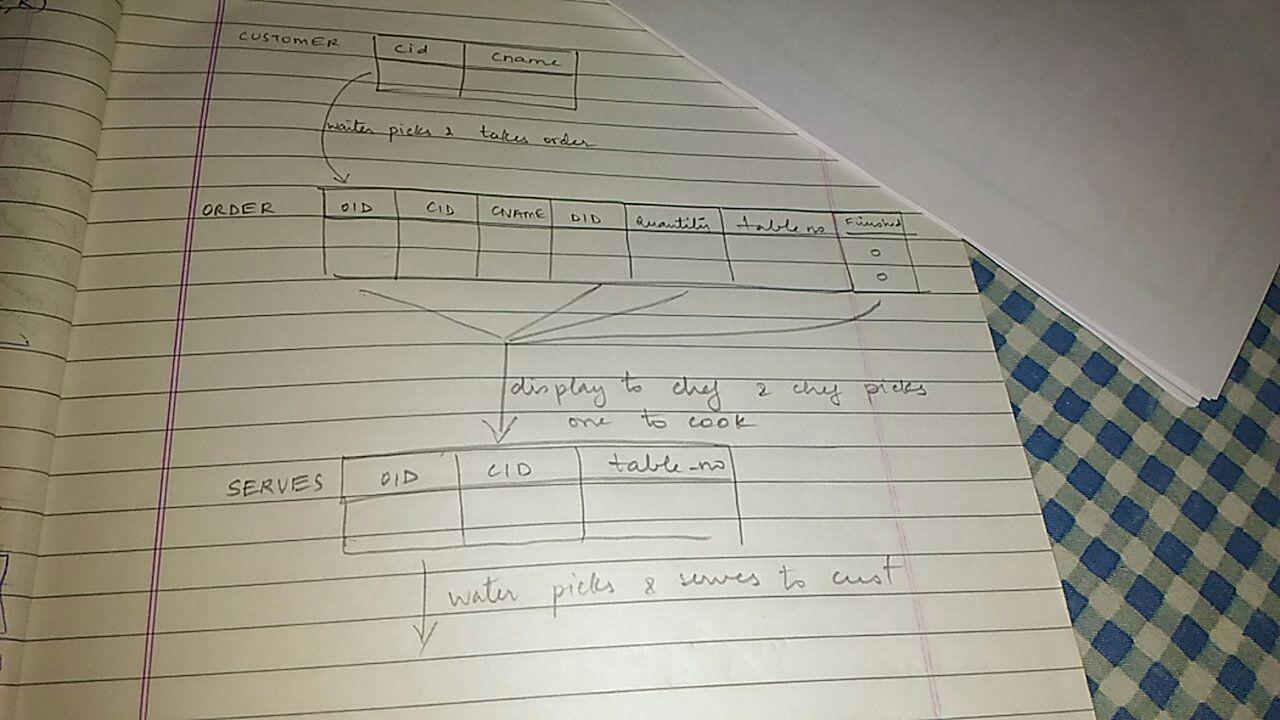 CUSTOMER cid cname
waiter picks & takes order
ORDER OID CID CNAME DID Quantities table no Finished
0
0
display to chef & chef picks
one to cook
SERVES OID CID table-no
water picks & serves to cust